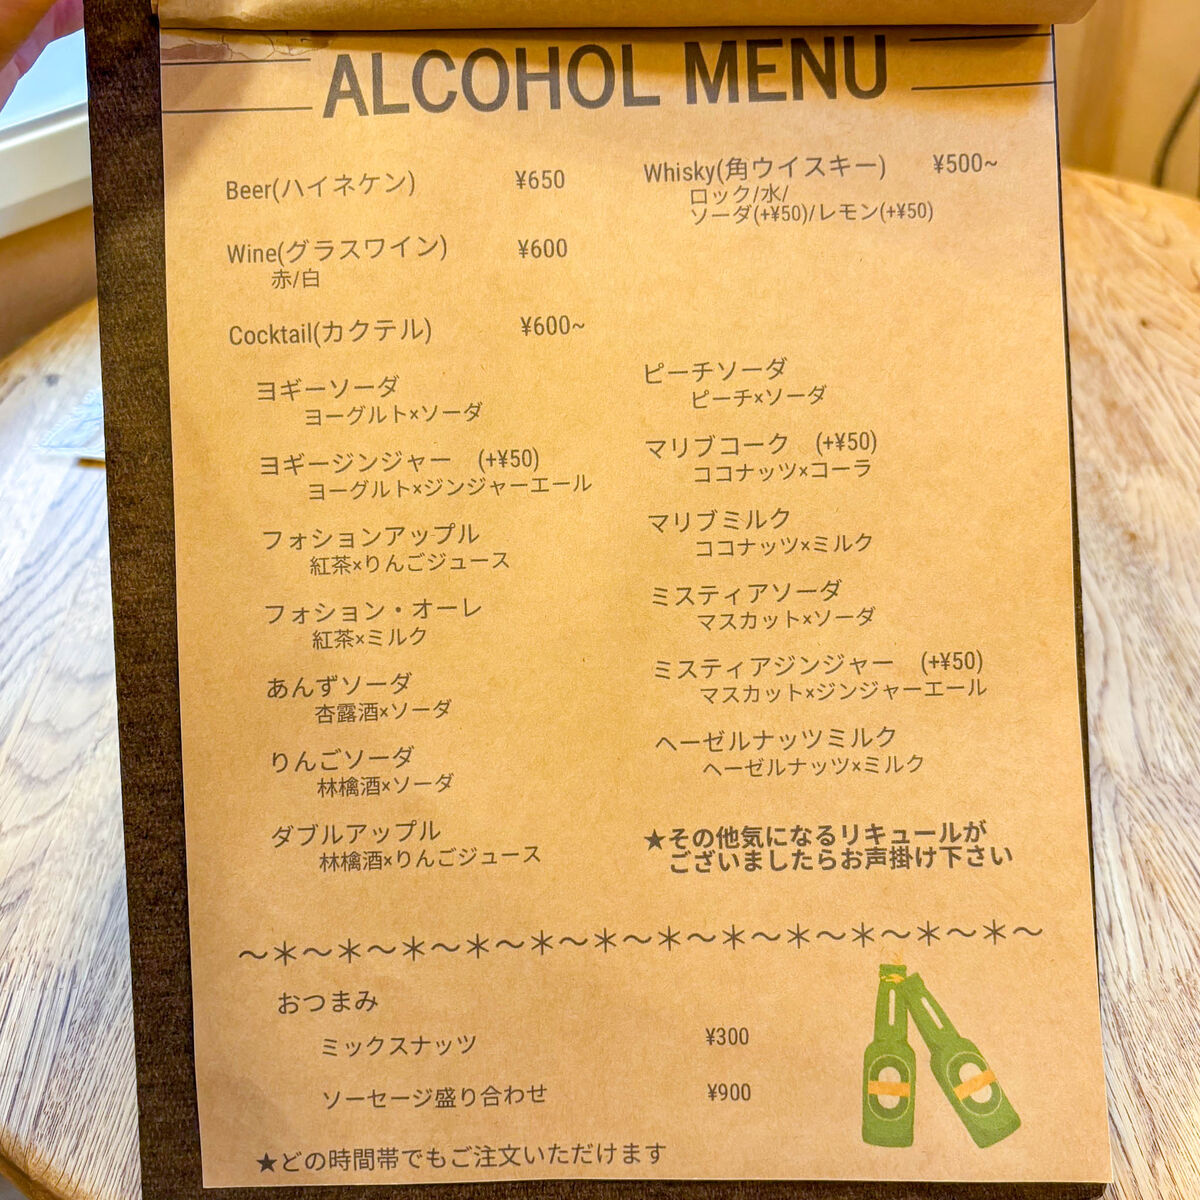 ALCOHOL MENU
Beer(ハイネケン) ¥650
Wine(グラスワイン) ¥600
赤/白
Cocktail(カクテル) ¥600~
ヨギーソーダ
ヨーグルト×ソーダ
ヨギージンジャー (+¥50)
ヨーグルト×ジンジャーエール
フォションアップル
紅茶×りんごジュース
フォション・オーレ
紅茶×ミルク
あんずソーダ
杏露酒×ソーダ
りんごソーダ
林檎酒×ソーダ
ダブルアップル
林檎酒×りんごジュース
Whisky(角ウイスキー) ¥500~
ロック/水/
ソーダ(+¥50)/レモン(+¥50)
ピーチソーダ
ピーチ×ソーダ
マリブコーク (+¥50)
ココナッツ×コーラ
マリブミルク
ココナッツ×ミルク
ミスティアソーダ
マスカット×ソーダ
ミスティアジンジャー (+¥50)
マスカット×ジンジャーエール
ヘーゼルナッツミルク
ヘーゼルナッツ×ミルク
★その他気になるリキュールが
ございましたらお声掛け下さい
~*~*~*~*~*~*~*~*~*~*~*~*~
おつまみ
ミックスナッツ ¥300
ソーセージ盛り合わせ ¥900
★どの時間帯でもご注文いただけます